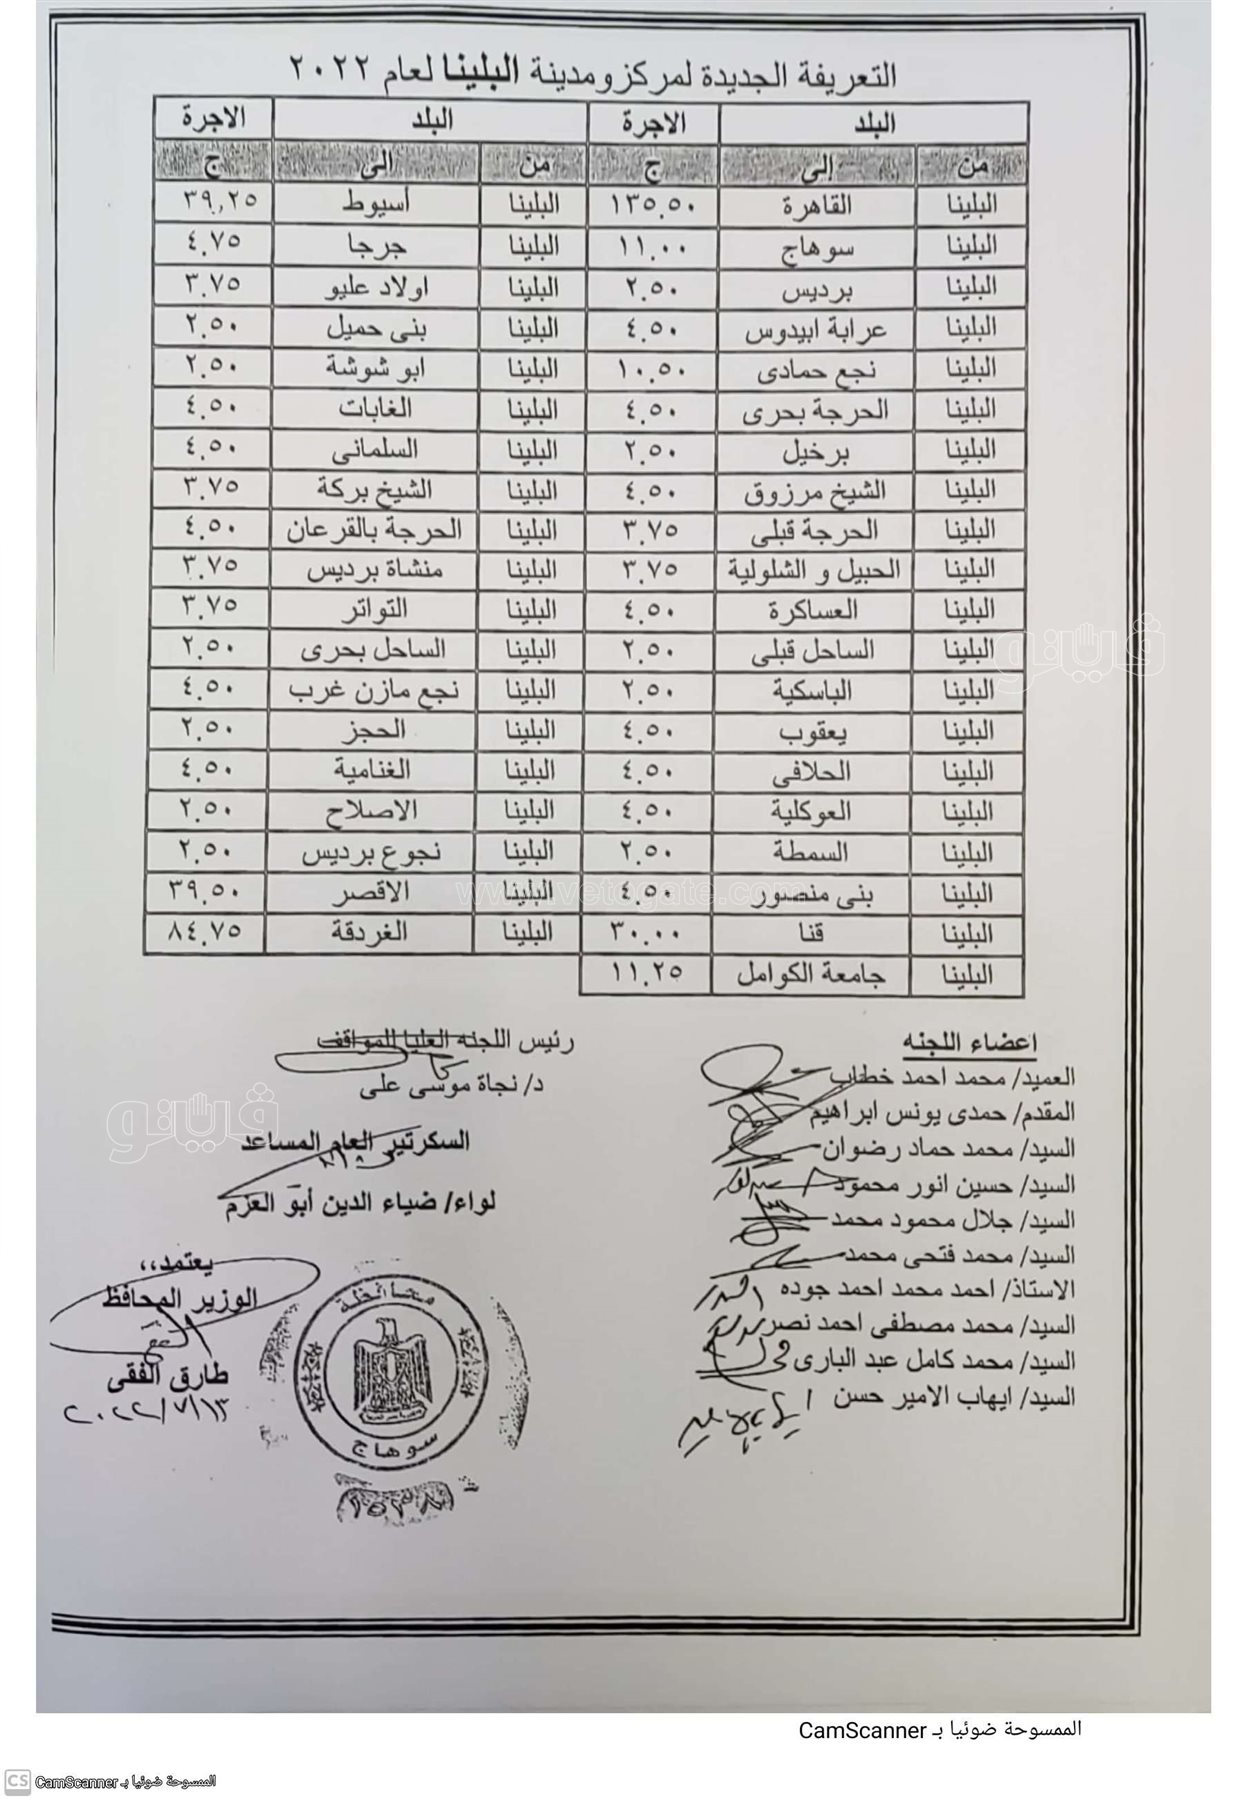 التعريفة الجديدة لمركز ومدينة البلينا لعام ٢٠٢٢
البلد الاجرة البلد الاجرة
من إلى ج من إلى ج
البلينا القاهرة ١٣٥.٥٠ البلينا أسيوط ٣٩.٢٥
البلينا سوهاج ١١.٠٠ البلينا جرجا ٤.٧٥
البلينا برديس ٢.٥٠ البلينا اولاد عليو ٣.٧٥
البلينا عرابة ابيدوس ٤.٥٠ البلينا بنى حميل ٢.٥٠
البلينا نجع حمادى ١٠.٥٠ البلينا ابو شوشة ٢.٥٠
البلينا الحرجة بحرى ٤.٥٠ البلينا الغابات ٤.٥٠
البلينا برخيل ٢.٥٠ البلينا السلمانى ٤.٥٠
البلينا الشيخ مرزوق ٤.٥٠ البلينا الشيخ بركة ٣.٧٥
البلينا الحرجة قبلى ٣.٧٥ البلينا الحرجة بالقرعان ٤.٥٠
البلينا الحبيل و الشلولية ٣.٧٥ البلينا منشاة برديس ٣.٧٥
البلينا العساكرة ٤.٥٠ البلينا التواتر ٣.٧٥
البلينا الساحل قبلى ٢.٥٠ البلينا الساحل بحرى ٢.٥٠
البلينا الباسكية ٢.٥٠ البلينا نجع مازن غرب ٤.٥٠
البلينا يعقوب ٤.٥٠ البلينا الحجز ٢.٥٠
البلينا الحلافى ٤.٥٠ البلينا الغنامية ٤.٥٠
البلينا العوكلية ٤.٥٠ البلينا الاصلاح ٢.٥٠
البلينا السمطة ٢.٥٠ البلينا نجوع برديس ٢.٥٠
البلينا بنى منصور ٤.٥٠ البلينا الاقصر ٣٩.٥٠
البلينا قنا ٣٠.٠٠ البلينا الغردقة ٨٤.٧٥
البلينا جامعة الكوامل ١١.٢٥
اعضاء اللجنه
العميد/ محمد احمد خطاب
المقدم/ حمدى يونس ابراهيم
السيد/ محمد حماد رضوان
السيد/ حسين انور محمود
السيد/ جلال محمود محمد
السيد/ محمد فتحى محمد
الاستاذ/ احمد محمد احمد جوده
السيد/ محمد مصطفى احمد نصر
السيد/ محمد كامل عبد البارى
السيد/ ايهاب الامير حسن
رئيس اللجنه العليا للمواقف
د/ نجاة موسى على
السكرتير العام المساعد
لواء/ ضياء الدين أبو العزم
يعتمد،،
الوزير المحافظ
طارق الفقى
٢٠٢٢/٧/١٣
محافظة
سوهاج
فيتو
فيتو
www.vetogate.com
الممسوحة ضوئيا بـ CamScanner
CS الممسوحة ضوئيا بـ CamScanner